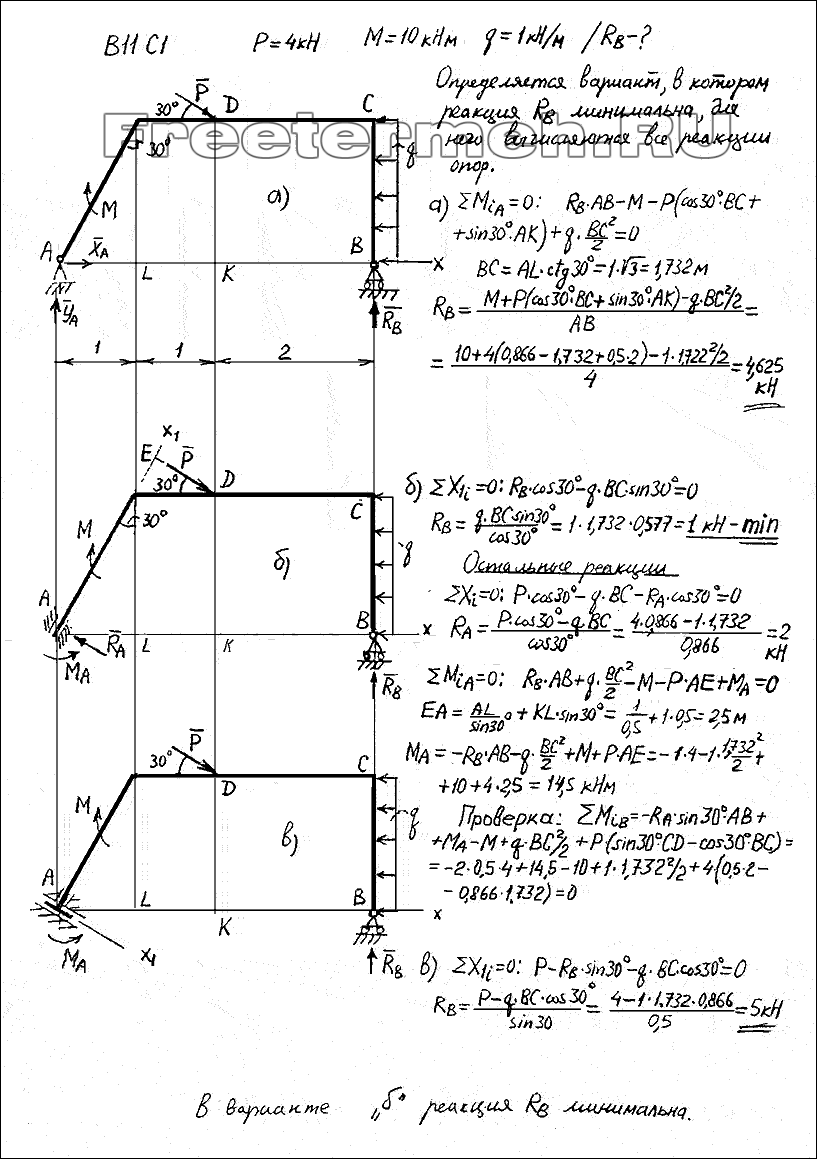 В11 С1 P=4кН M=10кНм q=1кН/м /R_B-?
Определяется вариант, в котором
реакция R_B минимальна, для
него вычисляются все реакции
опор.
Freetermeh.RU
а) ΣM_iA=0: R_B·AB-M-P(cos30°·BC+
+sin30°·AK)+q·BC²/2=0
BC=AL·ctg30°=1·√3=1,732м
R_B= (M+P(cos30°·BC+sin30°·AK)-q·BC²/2)/AB =
= (10+4(0,866-1,732+0,5·2)-1·1,722²/2)/4 =4,625
кН
30° P̅ D C
30°
M а) q
A X̅_A L K B x
Y̅_A R̅_B
1 1 2
б) ΣX_1i=0: R_B·cos30°-q·BC·sin30°=0
R_B= q·BC·sin30°/cos30° =1·1,732·0,577=1кН-min
Остальные реакции
ΣX_i=0: P·cos30°-q·BC-R_A·cos30°=0
R_A= (P·cos30°-q·BC)/cos30° = (4·0,866-1·1,732)/0,866 =2
кН
ΣM_iA=0: R_B·AB+q·BC²/2-M-P·AE+M_A=0
EA= AL/sin30° +KL·sin30°= 1/0,5 +1·0,5=2,5м
M_A=-R_B·AB-q·BC²/2+M+P·AE=-1·4-1·1,732²/2+
+10+4·2,5=14,5 кНм
Проверка: ΣM_iB=-R_A·sin30°·AB+
+M_A-M+q·BC²/2+P(sin30°CD-cos30°BC)=
=-2·0,5·4+14,5-10+1·1,732²/2+4(0,5·2-
-0,866·1,732)=0
x₁
E P̅ D
30° C
30°
M б) q
A B x
R̅_A L K
M_A R̅_B
P̅ C
30° D
M в) q
A L B x
K
M_A x₁ R̅_B
в) ΣX_1i=0: P-R_B·sin30°-q·BC·cos30°=0
R_B= (P-q·BC·cos30°)/sin30 = (4-1·1,732·0,866)/0,5 =5кН
В варианте „б" реакция R_B минимальна.